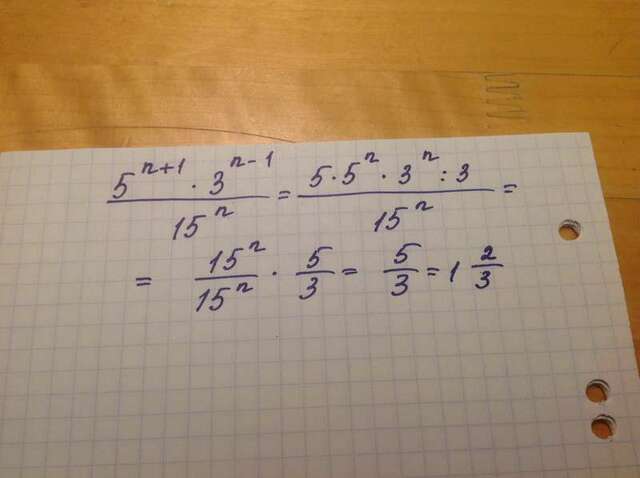 5^{n+1} · 3^{n-1} / 15^n = 5 · 5^n · 3^n : 3 / 15^n =
= 15^n / 15^n · 5/3 = 5/3 = 1 2/3